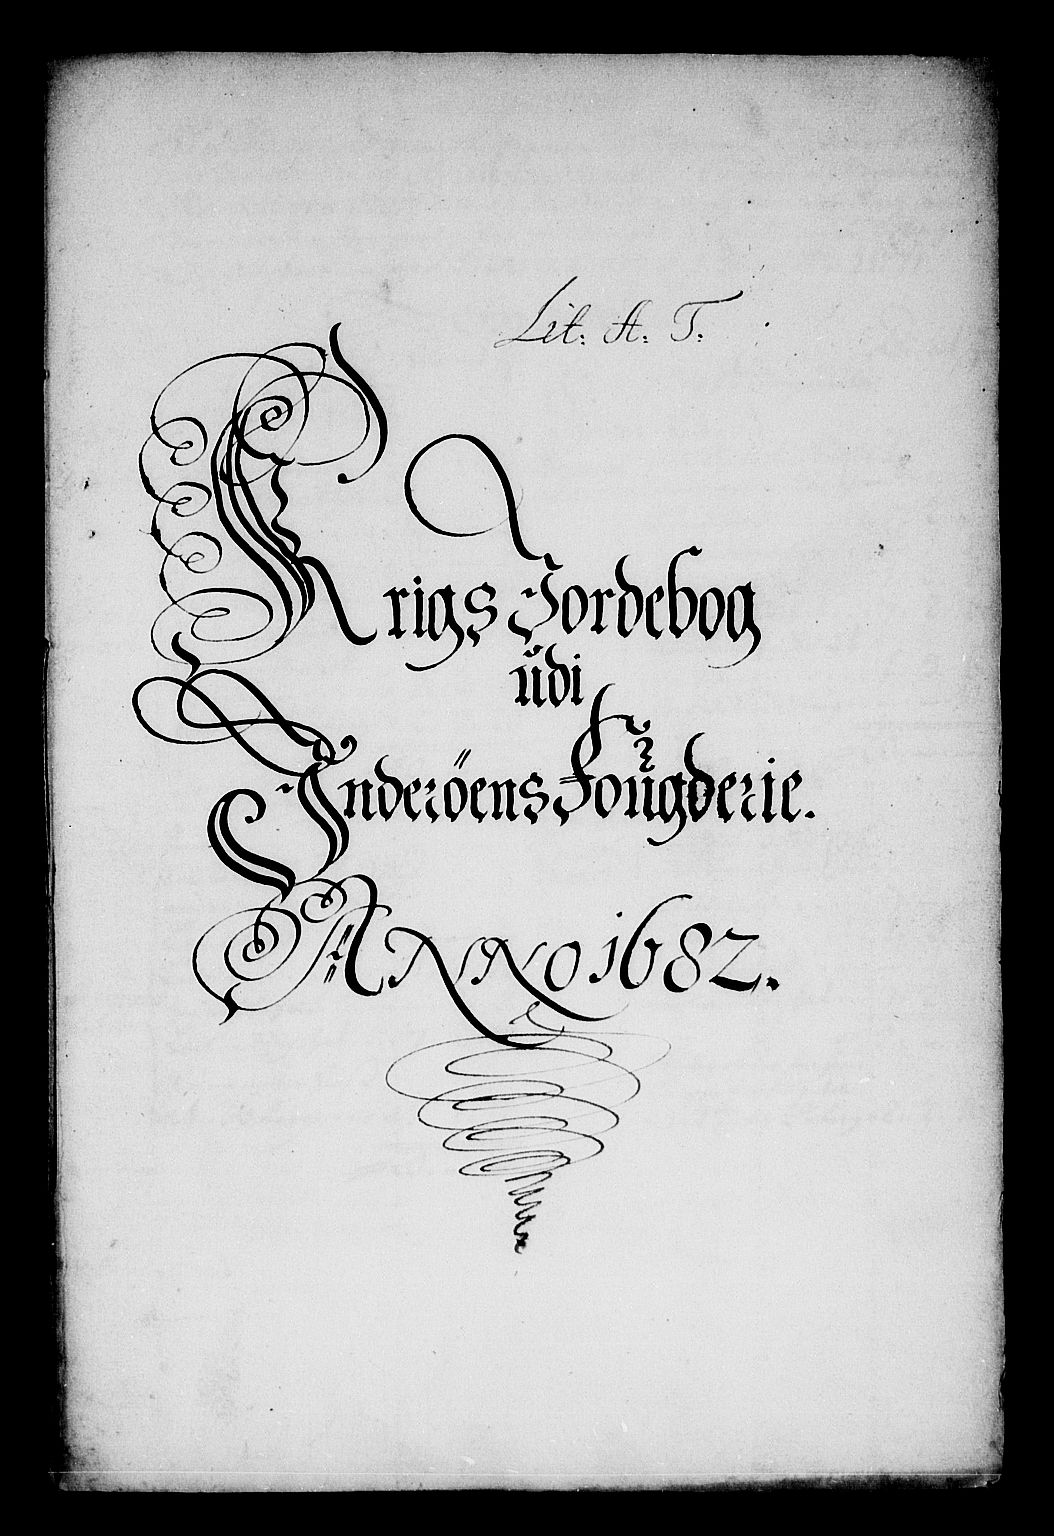 Lit: A. T:
Krigs Jordebog
udi
Inderöens Fougderie.
ANNO 1682.